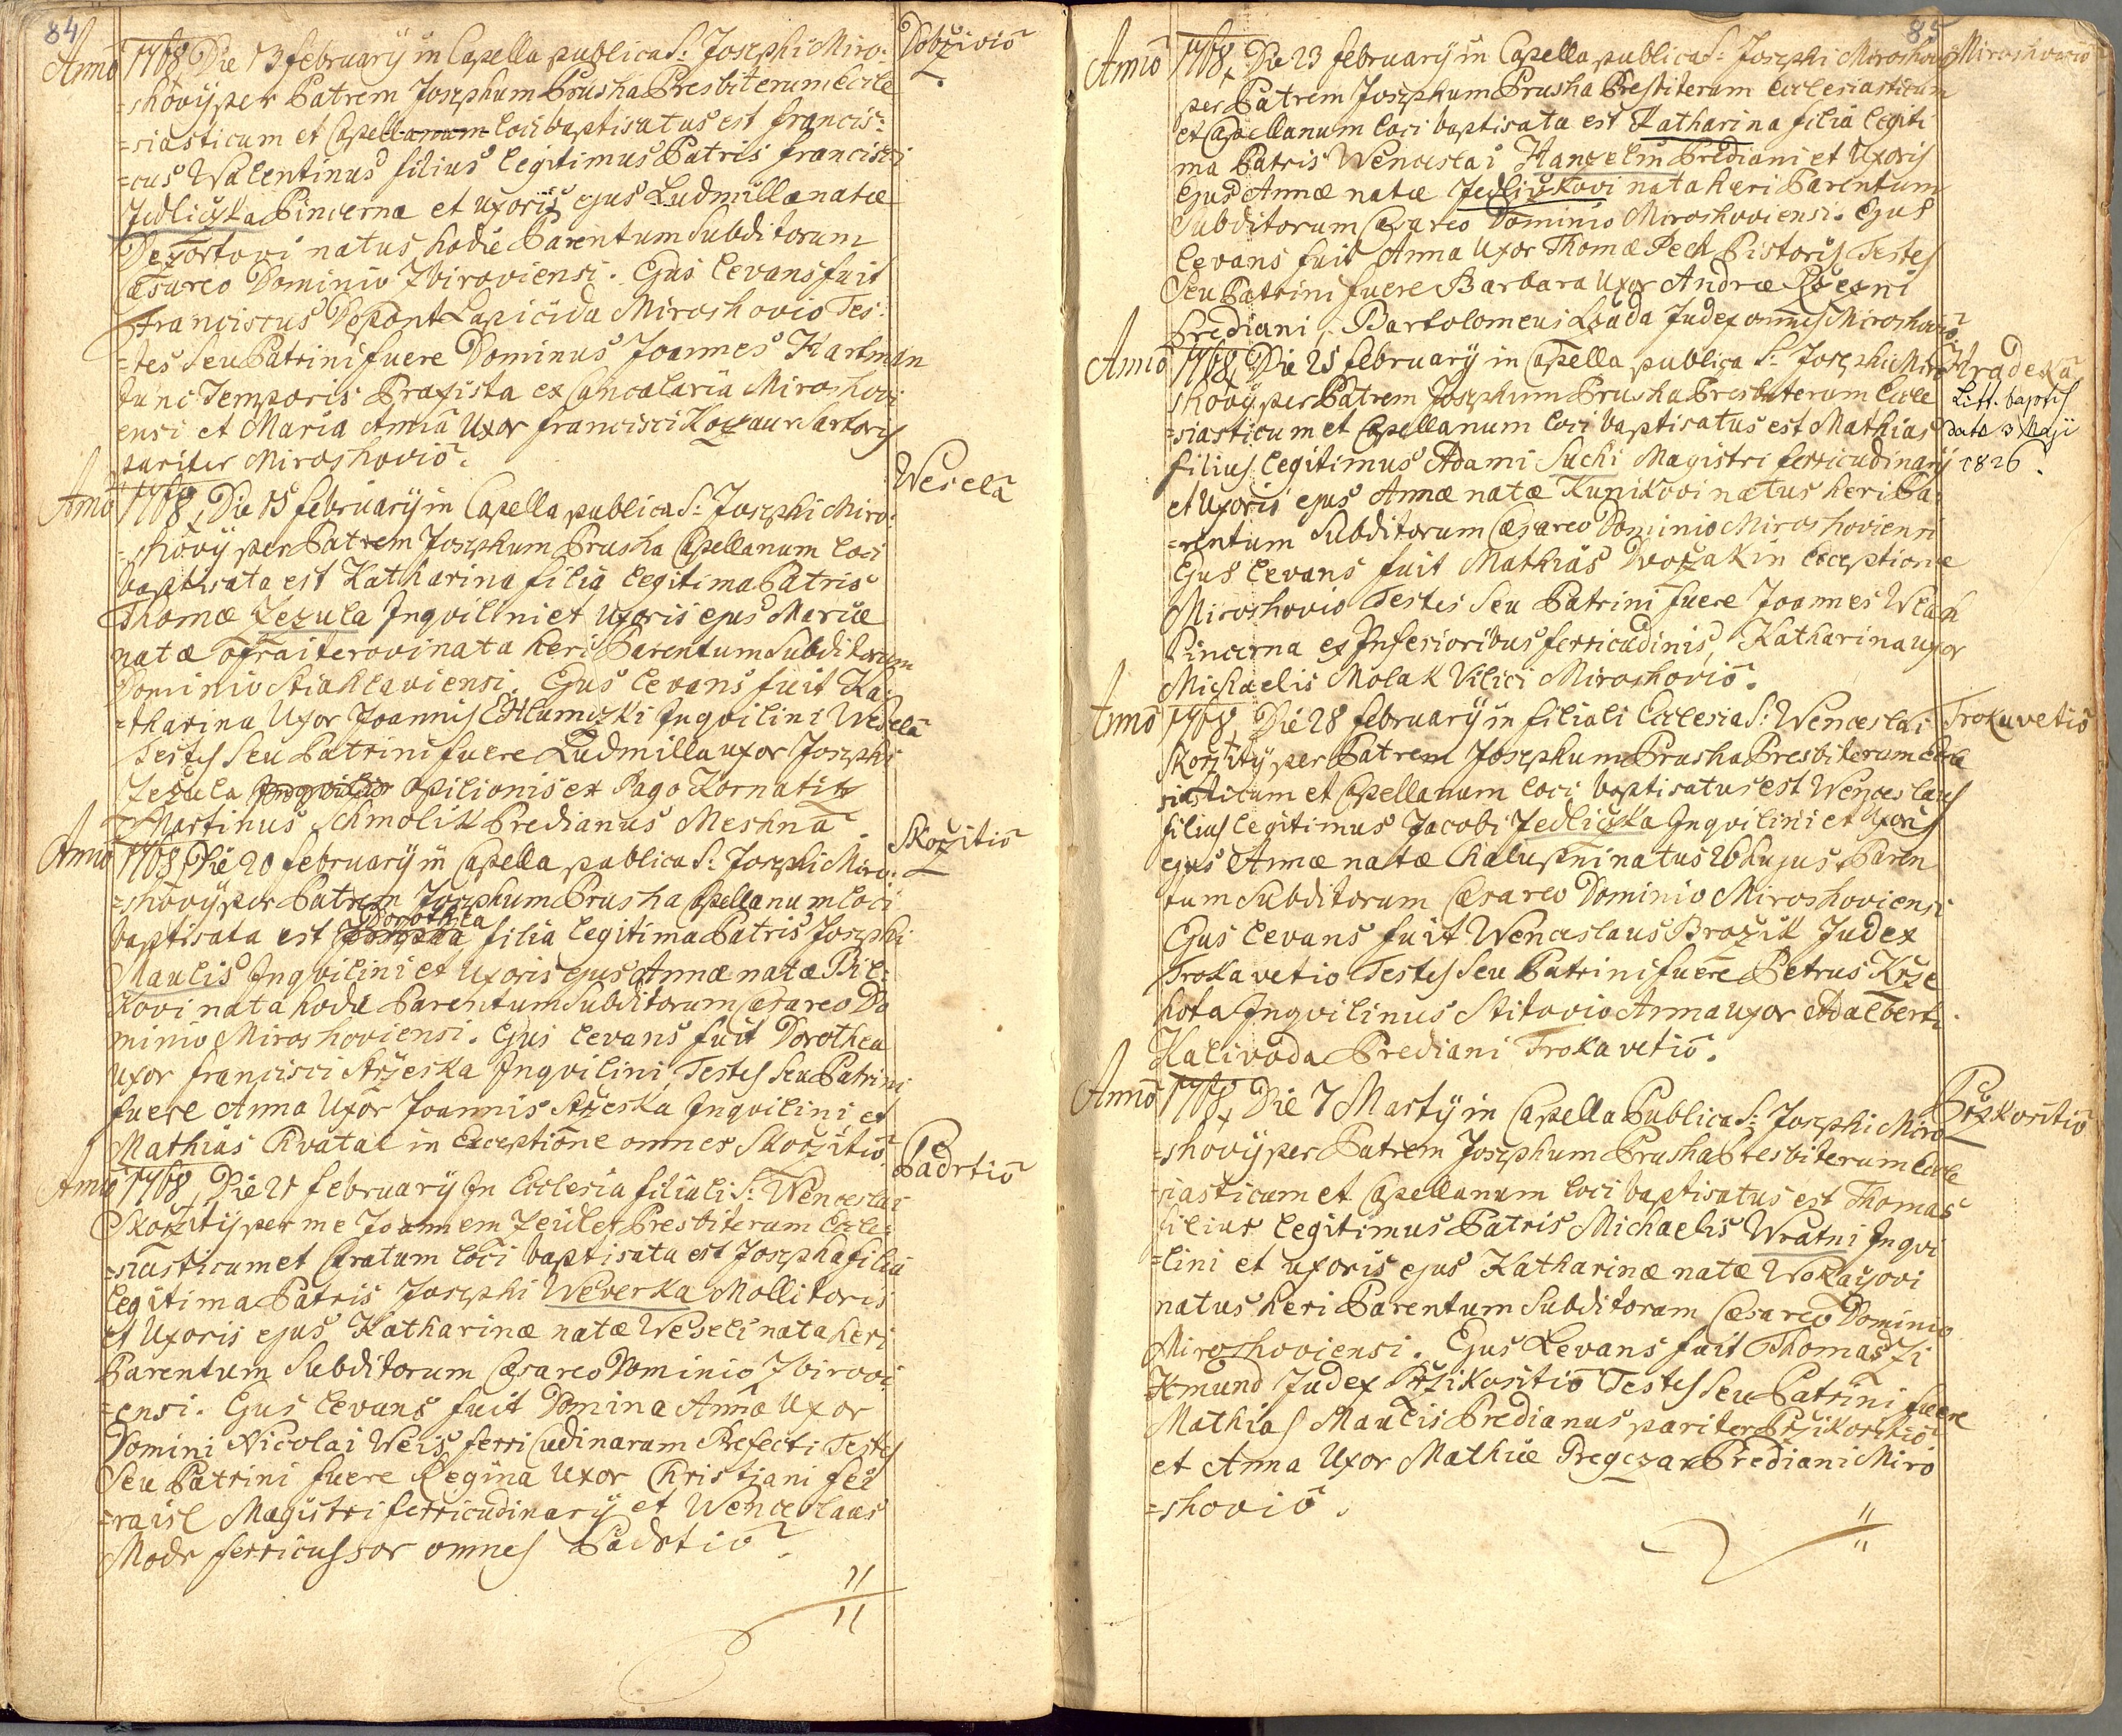 84
Dobrzivio
Anno 1768, Die 13 february in Capella publica S: Josephi Miro:
=shovy per Patrem Josephum Prusha Presbiterum Eccle
=siasticum et Capellanum loci baptisatus est Francis:
=cus Walentinus filius legitimus Patris Francisci
Jedliczka Pincernæ et uxoris ejus Ludmillæ natæ
natus hodie Parentum Subditorum
Cæsareo Dominio Zbiroviensi. Ejus levans fuit
Franciscus Depont Lapicida Miroshovio Tes:
=tes Seu Patrini fuere Dominus Joannes Hartman
tunc Temporis Praxista ex Cancalaria Miroshovi
ensi et Maria Anna Uxor Francisci Kotzaur Sartoris
pariter Miroshovio.
Wesela
Anno 1768, Die 15 february in Capella publica S: Josephi Miro:
=shovy per Patrem Josephum Prusha Capellanum loci
baptisata est Katharina filia legitima Patris
Thomæ Zezula Inqvilini et Uxoris ejus Mariæ
natæ nata heri Parentum Subditorum
Dominio Stiahlaviensi. Ejus levans fuit Ka:
=tharina Uxor Joannis Chlumczki Inqvilini Wesela
Testes Seu Patrini fuere Ludmilla uxor Josephi
Zezula Inqvilin opilionis ex Pago Kornatitz
Martinus Schmolik Predianus Meshna.
Skorzitio
Anno 1768, Die 20 february in Capella publica S: Josephi Miro:
=shovy per Patrem Josephum Prusha Capellanum loci
Dorothea
baptisata est Josepha filia legitima Patris Josephi
Maulis Inqvilini et Uxoris ejus Annæ natæ Bil:
kovi nata hodie Parentum Subditorum Cæsareo Do
minio Miroshoviensi. Ejus levans fuit Dorothea
uxor Francisci Strzeska Inqvilini, Testes Seu Patrini
fuere Anna Uxor Joannis Strzeska Inqvilini, et
Mathias Chvatal in Exceptione omnes Skorzitio
Padrtio
Anno 1768, Die 21 february In Ecclesia filiali S: Wenceslai
Skorzity per me Joannem Zeidler Presbiterum Eccle:
=siasticum et Curatum loci baptisata est Josepha filia
legitima Patris Josephi Weverka Mollitoris
et Uxoris ejus Katharinæ natæ Weseli nata heri
Parentum Subditorum Cæsareo Dominio Zbirovi
=ensi. Ejus levans fuit Domina Anna Uxor
Domini Nicolai Weis ferri Cudinarum Prefecti Testes
Seu Patrini fuere Regina Uxor Christiani fei
=raisl Magistri ferricudinary et Wenceslaus
Modr ferricussor omnes Padrtio.
85
Miroshovio
Anno 1768, Die 23 february in Capella publica S: Josephi Miroshovy
per Patrem Josephum Prusha Presbiterum Ecclesiasticum
et Capellanum loci baptisata est Katharina filia legiti
ma Patris Wenceslai Hanzelin Prediani et Uxoris
Ejus Annæ natæ Jedliczkovi nata heri Parentum
Subditorum Cæsareo Dominio Miroshoviensi. Ejus
levans fuit Anna Uxor Thomæ Pech Pistoris Testes
Seu Patrini fuere Barbara Uxor Andræ Rzezni
Prediani, Bartolomeus Lzada Judex omnes Miroshovio
Hradeka
Anno 1768, Die 25 february in Capella publica S: Josephi Miro
shovy per Patrem Josephum Prusha Presbiterum Eccle
Litt. baptis
=siasticum et Capellanum loci baptisatus est Mathias
data 3 Maji
filius legitimus Adami Suchi Magistri ferricudinary
1826.
et Uxoris ejus Annæ natæ Kunikovi natus heri Pa:
=rentum Subditorum Cæsareo Dominio Miroshoviensi
Ejus levans fuit Mathias Dworzak in Exceptione
Miroshovio Testes Seu Patrini fuere Joannes Wlach
Pincerna ex Inferioribus ferricudinis, Katharina uxor
Michaelis Molak Vilici Miroshovio.
Trokavetio
Anno 1768, Die 28 february in filiali Ecclesia S: Wenceslai
Skorzity per Patrem Josephum Prusha Presbiterum Eccle
siasticum et Capellanum loci baptisatus est Wenceslaus
filius legitimus Jacobi Jedliczka Inqvilini et Uxoris
ejus Annæ natæ Chalupni natus 26 hujus Paren
tum Subditorum Cæsareo Dominio Miroshoviensi
Ejus levans fuit Wenceslaus Brozik Judex
Trokavetio Testes Seu Patrini fuere Petrus Krze
hota Inqvilinus Stitovio Anna uxor Adalberti
Kalivoda Prediani Trokavetio.
Przkositio
Anno 1768, Die 7 Marty in Capella Publica S: Josephi Miro
=shovy per Patrem Josephum Prusha Presbiterum Eccle
siasticum et Capellanum loci baptisatus est Thomas
filius legitimus Patris Michaelis Wratni Inqvi
=lini et uxoris ejus Katharinæ natæ Wokaczovi
natus heri Parentum Subditorum Cæsareo Dominio
Miroshoviensi. Ejus Levans fuit Thomas Zi
kmund Judex Przikositio Testes Seu Patrini fuere
Mathias Maulis Predianus pariter Przikositio
et Anna Uxor Mathiæ Pregczar Prediani Miro
=shovio.